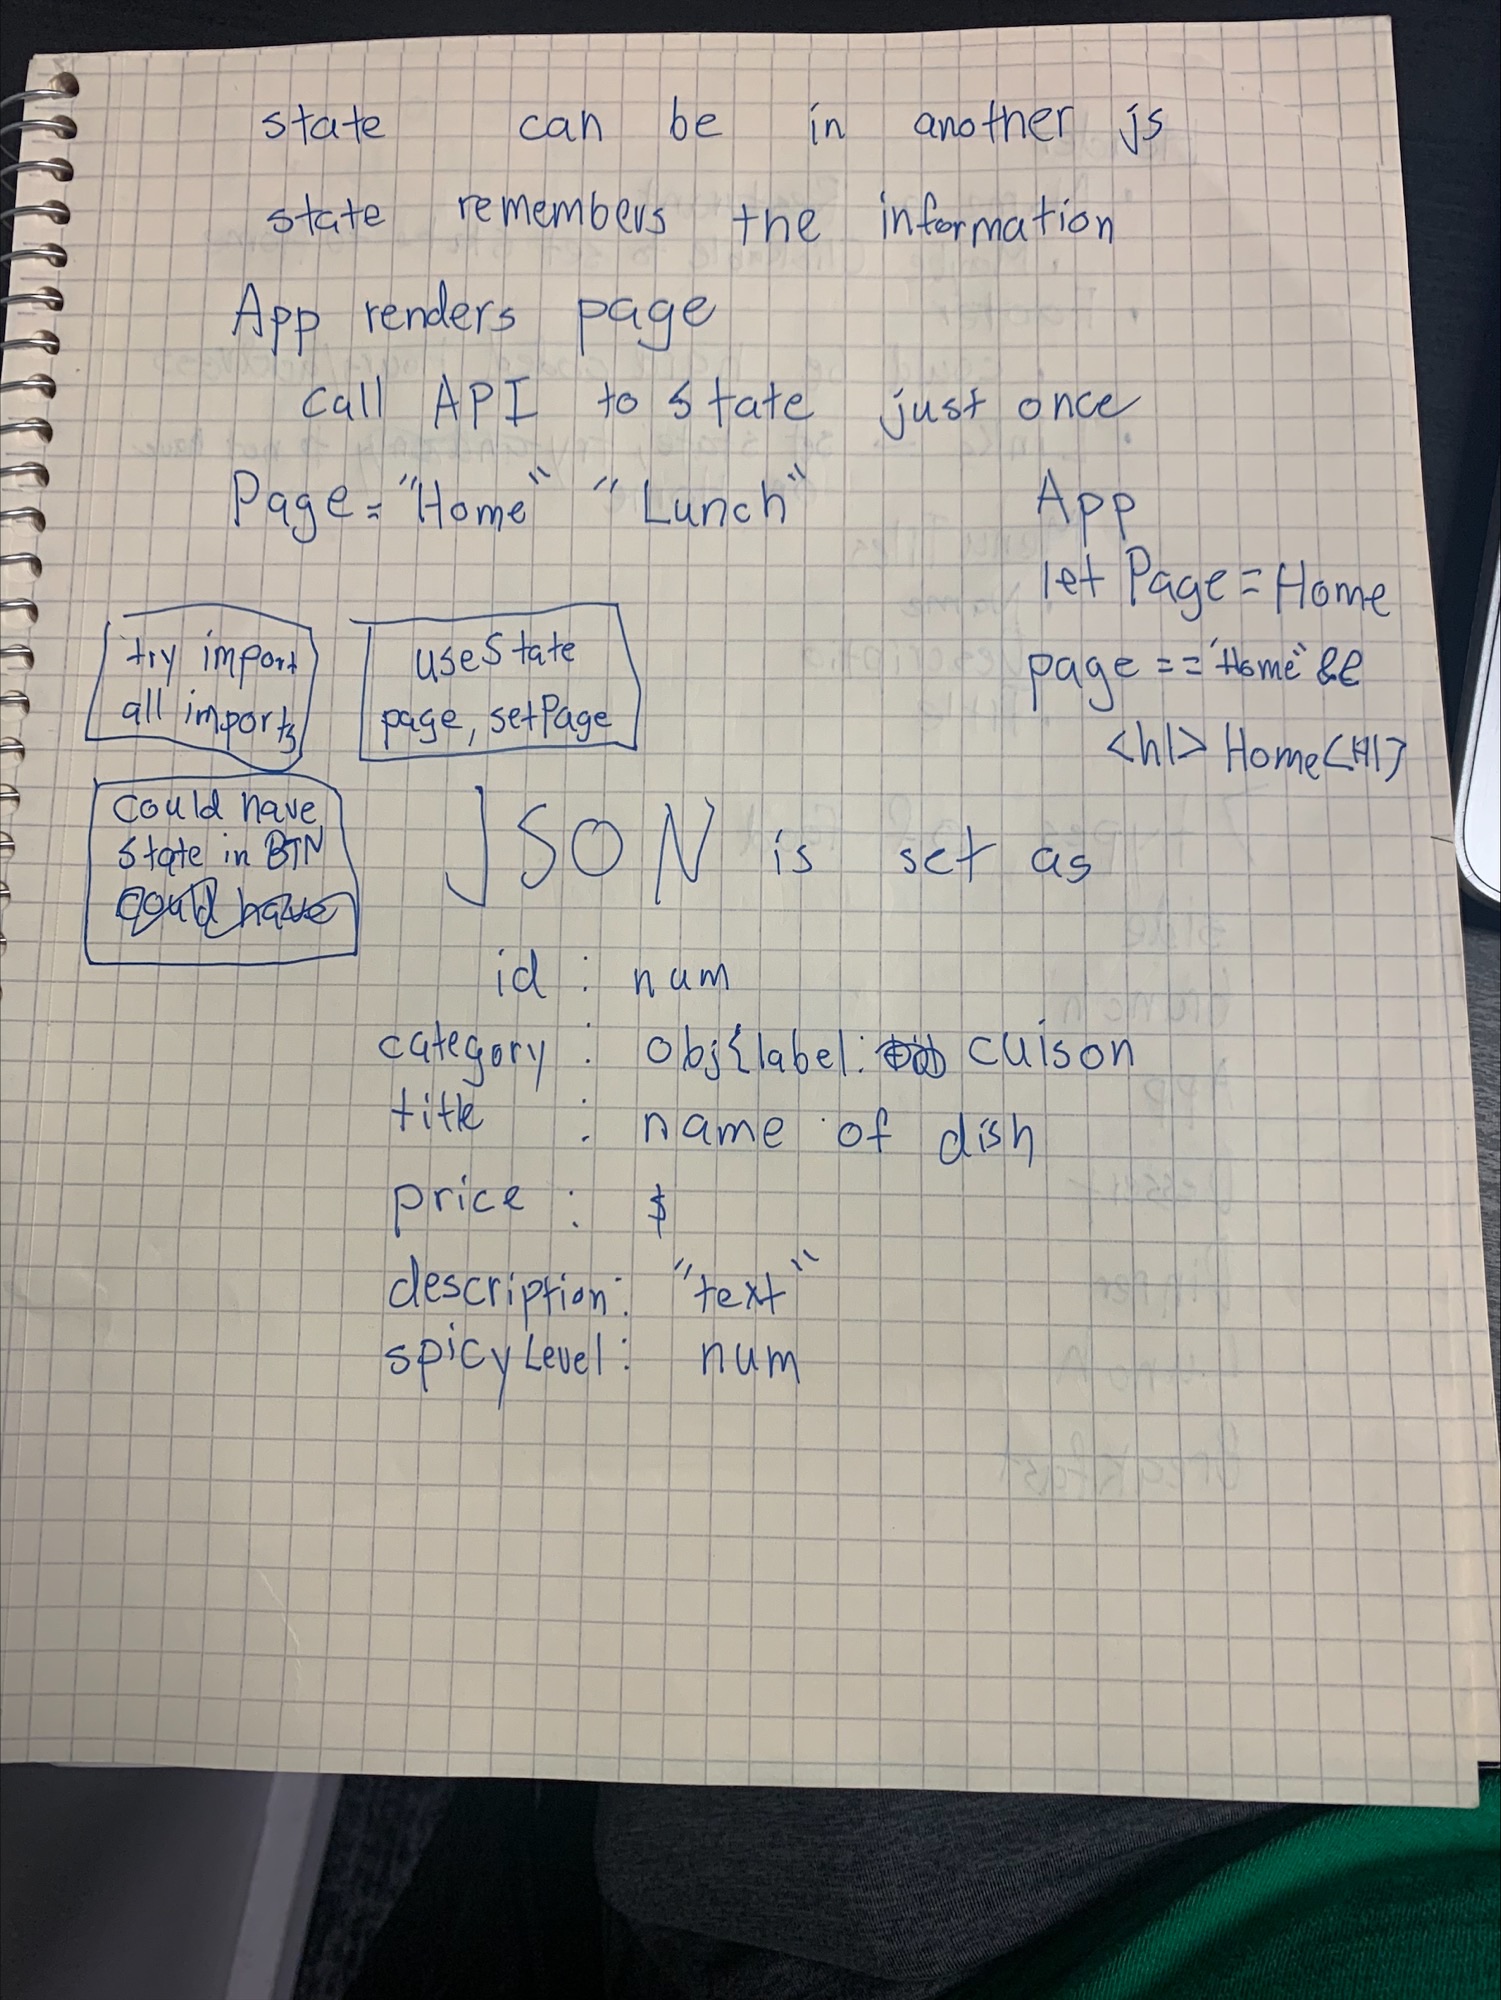 state can be in another js
state remembers the information
App renders page
call API to state just once
Page = "Home" "Lunch"
App
let Page = Home
page == "Home" &&
<h1> Home <H1>
try import
all imports
useState
page, setPage
could have
state in BTN
could have
JSON is set as
id : num
category : obj{label: cuison
title : name of dish
price : $
description: "text"
spicyLevel: num